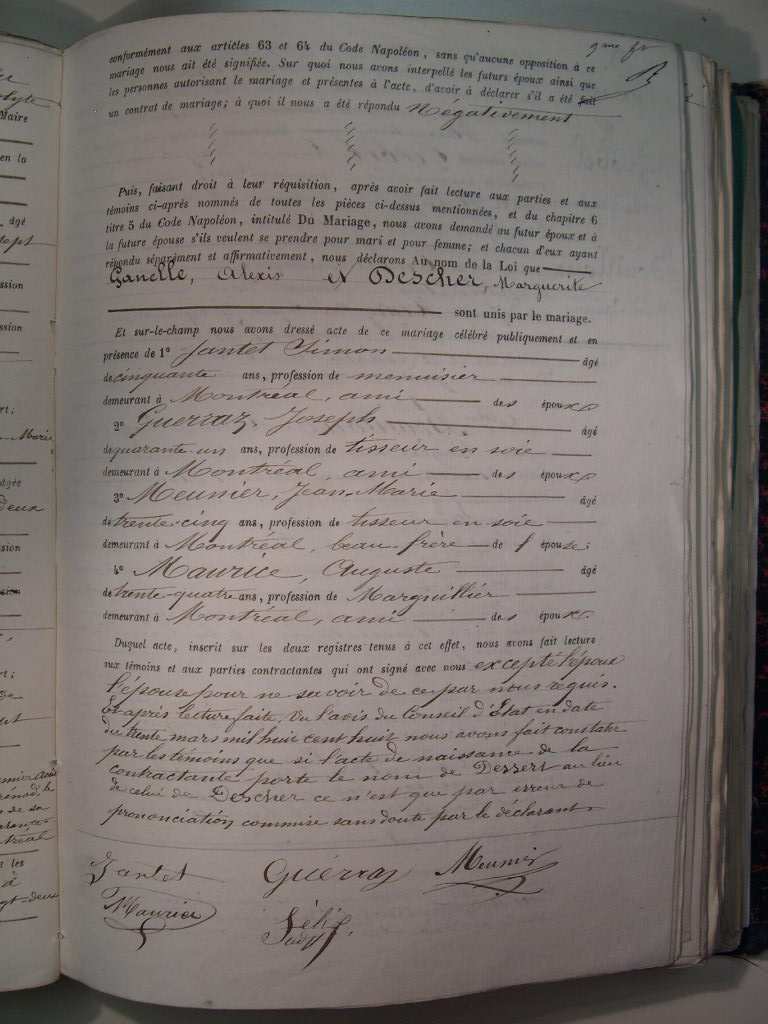 conformément aux articles 63 et 64 du Code Napoléon, sans qu'aucune opposition à ce
mariage nous ait été signifiée. Sur quoi nous avons interpellé les futurs époux ainsi que
les personnes autorisant le mariage et présentes à l'acte, d'avoir à déclarer s'il a été fait
un contrat de mariage; à quoi il nous a été répondu Négativement
Puis, faisant droit à leur réquisition, après avoir fait lecture aux parties et aux
témoins ci-après nommés de toutes les pièces ci-dessus mentionnées, et du chapitre 6
titre 5 du Code Napoléon, intitulé Du Mariage, nous avons demandé au futur époux et à
la future épouse s'ils veulent se prendre pour mari et pour femme; et chacun d'eux ayant
répondu séparément et affirmativement, nous déclarons Au nom de la Loi que
Ganelle, Alexis et Descher, Marguerite
sont unis par le mariage.
Et sur-le-champ nous avons dressé acte de ce mariage célébré publiquement et en
présence de 1º Jantet Simon âgé
de cinquante ans, profession de menuisier
demeurant à Montréal, ami des époux
2º Guerraz, Joseph âgé
de quarante un ans, profession de tisseur en soie
demeurant à Montréal, ami des époux
3º Meunier, Jean-Marie âgé
de trente-cinq ans, profession de tisseur en soie
demeurant à Montréal, beau frère de l'épouse;
4º Maurice, Auguste âgé
de trente-quatre ans, profession de Marguillier
demeurant à Montréal, ami des époux.
Duquel acte, inscrit sur les deux registres tenus à cet effet, nous avons fait lecture
aux témoins et aux parties contractantes qui ont signé avec nous excepté l'époux
l'épouse pour ne savoir de ce par nous requis.
Et après lecture faite, Vu l'avis du Conseil d'Etat en date
du trente mars mil huit cent huit nous avons fait constater
par les témoins que si l'acte de naissance de la
contractante porte le nom de Dessert au lieu
de celui de Descher ce n'est que par erreur de
prononciation commise sans doute par le déclarant
Jantet Guérraz Meunier
Maurice